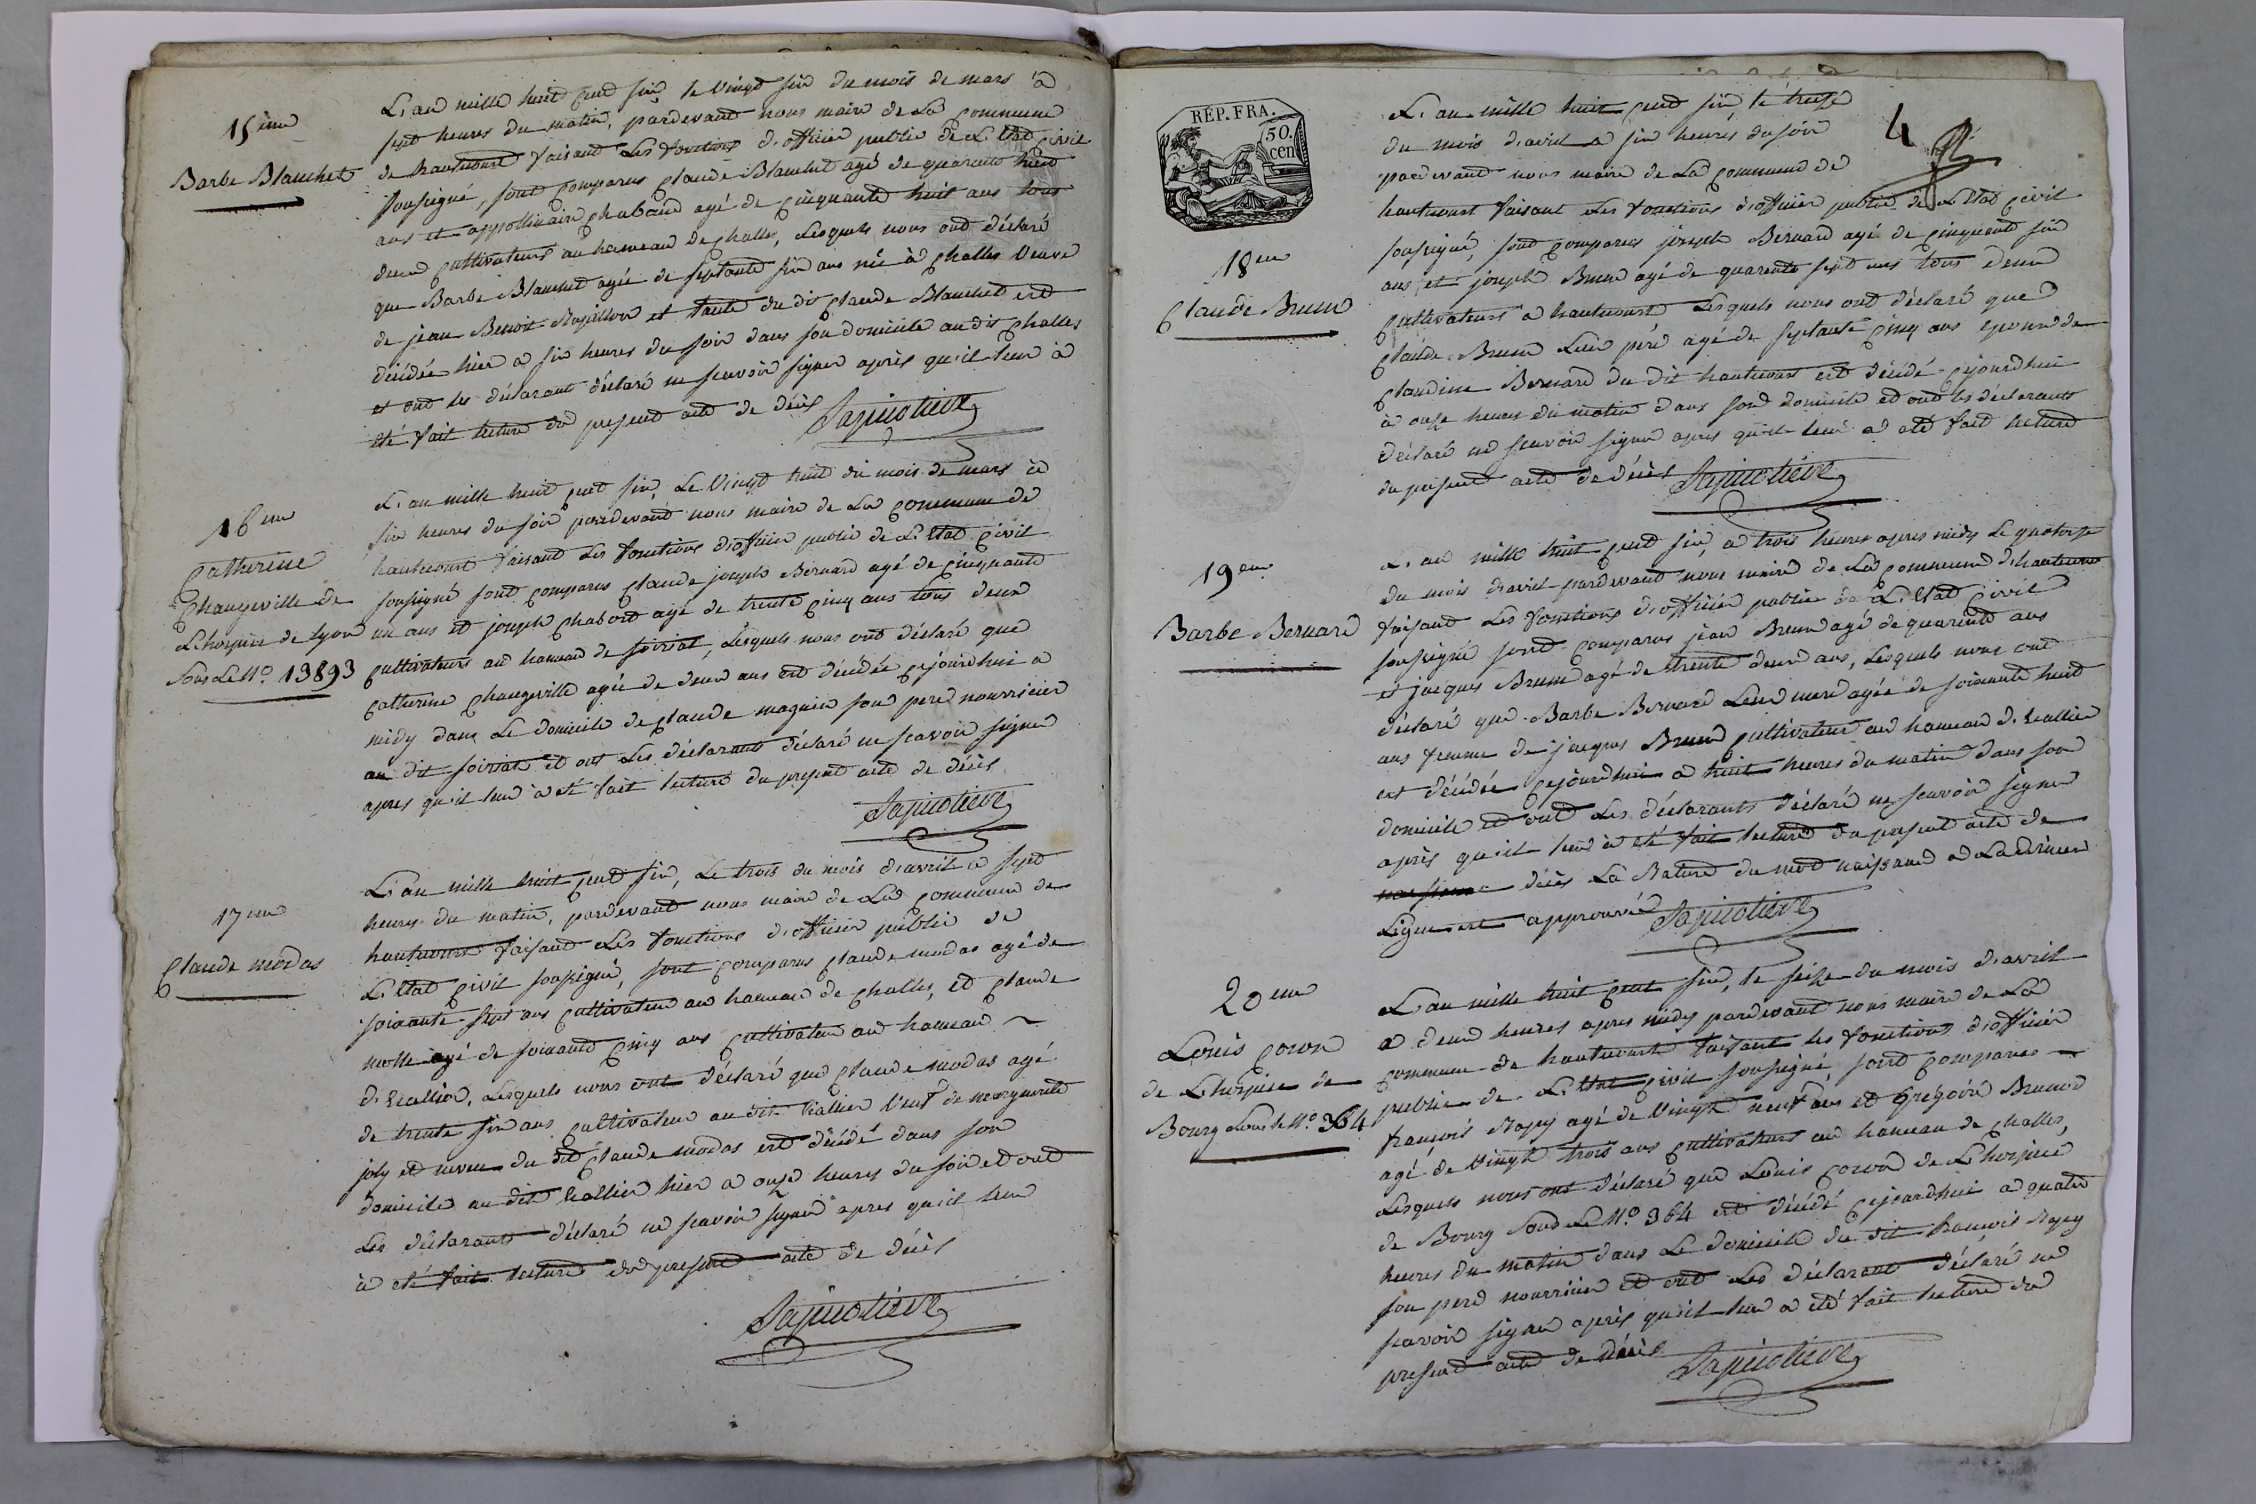 15eme
Barbe Blanchet
L'an mille huit cent six, le vingt six du mois de mars à
sept heures du matin, pardevant nous maire de La commune
de hautecourt faisant Les fonctions d'officier public de L'Etat civil
soussigné, sont comparus Claude Blanchet agé de quarante huit
ans et appollinaire Chaband agé de cinquante huit ans tous
deux cultivateurs au hameau de Challes, Lesquels nous ont déclaré
que Barbe Blanchet agée de septante six ans née à Challes veuve
de jean Benoit et tante du dit Claude Blanchet est
décédée hier a six heures du soir dans son domicile au dit Challes
et ont Les déclarant déclaré ne scavoir signer après qu'il leur à
eté fait lecture du present acte de décès
16eme
Catherine
Changeville de
L'hospice de Lyon
Sous Le No. 13893
L'an mille huit cent six, Le Vingt huit du mois de mars à
six heures du soir pardevant nous maire de La commune de
hautecourt faisant Les fonctions d'officier public de L'Etat civil
soussigné sont comparus Claude joseph Bernard agé de cinquante
un ans et joseph Chabord agé de trente cinq ans tous deux
cultivateurs au hameau de soiriat, Lesquels nous ont déclaré que
Catherine Changeville agée de deux ans est décédée cejourdhui a
midy dans Le domicile de Claude magnin son pere nourricier
au dit soiriat et ont Les déclarants déclaré ne scavoir signer
apres qu'il leur à eté fait lecture du present acte de décès
17eme
Claude modas
L'an mille huit cent six, Le trois du mois d'avril a sept
heures du matin, pardevant nous maire de La commune de
hautecourt faisant Les fonctions d'officier public de
L'Etat civil soussigné, sont comparus Claude modas agé de
soixante sept ans cultivateur au hameau de Challes, et Claude
molle agé de soixante cinq ans cultivateur au hameau
d'Eallier, Lesquels nous ont déclaré que Claude modas agé
de trente six ans cultivateur au dit Eallier veuf de marguerite
joly et neveu du dit Claude modas est décédé dans son
domicile au dit Eallier hier a onze heures du soir et ont
Les déclarants déclaré ne scavoir signer apres qu'il leur
à eté fait lecture du present acte de décès
REP. FRA.
50.
cen
4
18eme
Claude Brun
L'an mille huit cent six, le treize
du mois d'avril a six heures du soir
pardevant nous maire de La commune de
hautecourt faisant Les fonctions d'officier public de L'Etat civil
soussigné, sont comparus joseph Bernard agé de cinquante six
ans et joseph Brun agé de quarante sept ans tous deux
cultivateurs a hautecourt Lesquels nous ont déclaré que
Claude Brun Leur peré agé de septante cinq ans epoux de
Claudine Bernard du dit hautecourt est décédé cejourdhui
à onze heures du matin dans son domicile et ont les déclarants
déclaré ne scavoir signer apres qu'il leur a eté fait lecture
du present acte de décès
19eme
Barbe Bernard
L'an mille huit cent six, a trois heures apres midy Le quatorze
du mois d'avril pardevant nous maire de La commune d'hautecourt
faisant Les fonctions d'officier public de L'Etat civil
soussigné sont comparus jean Brun agé de quarante ans
et jacques Brun agé de trente deux ans, Lesquels nous ont
déclaré que Barbe Bernard Leur mere agée de soixante huit
ans femme de jacques Brun cultivateur au hameau d'Eallier
est décédée cejourdhui a huit heures du matin dans son
domicile et ont Les déclarants déclaré ne scavoir signer
après qu'il leur à eté fait lecture du present acte de
naissance décès La Rature du mot naissance a La
Ligne est approuvée
20eme
Louis Coron
de L'hospice de
Bourg sous le No. 364
L'an mille huit cent six, le seize du mois d'avril
a deux heures apres midy pardevant nous maire de La
commune de hautecourt faisant les fonctions d'officier
public de L'Etat civil soussigné, sont comparus
françois Nepey agé de vingt neuf ans et Grégoire Brunod
agé de vingt trois ans cultivateurs au hameau de Challes,
Lesquels nous ont déclaré que Louis Coron de L'hospice
de Bourg sous Le No. 364 est décédé cejourdhui a quatre
heures du matin dans Le domicile du dit françois Nepey
son pere nourricier et ont Les déclarant déclaré ne
scavoir signer après qu'il leur a eté fait lecture du
present acte de décès